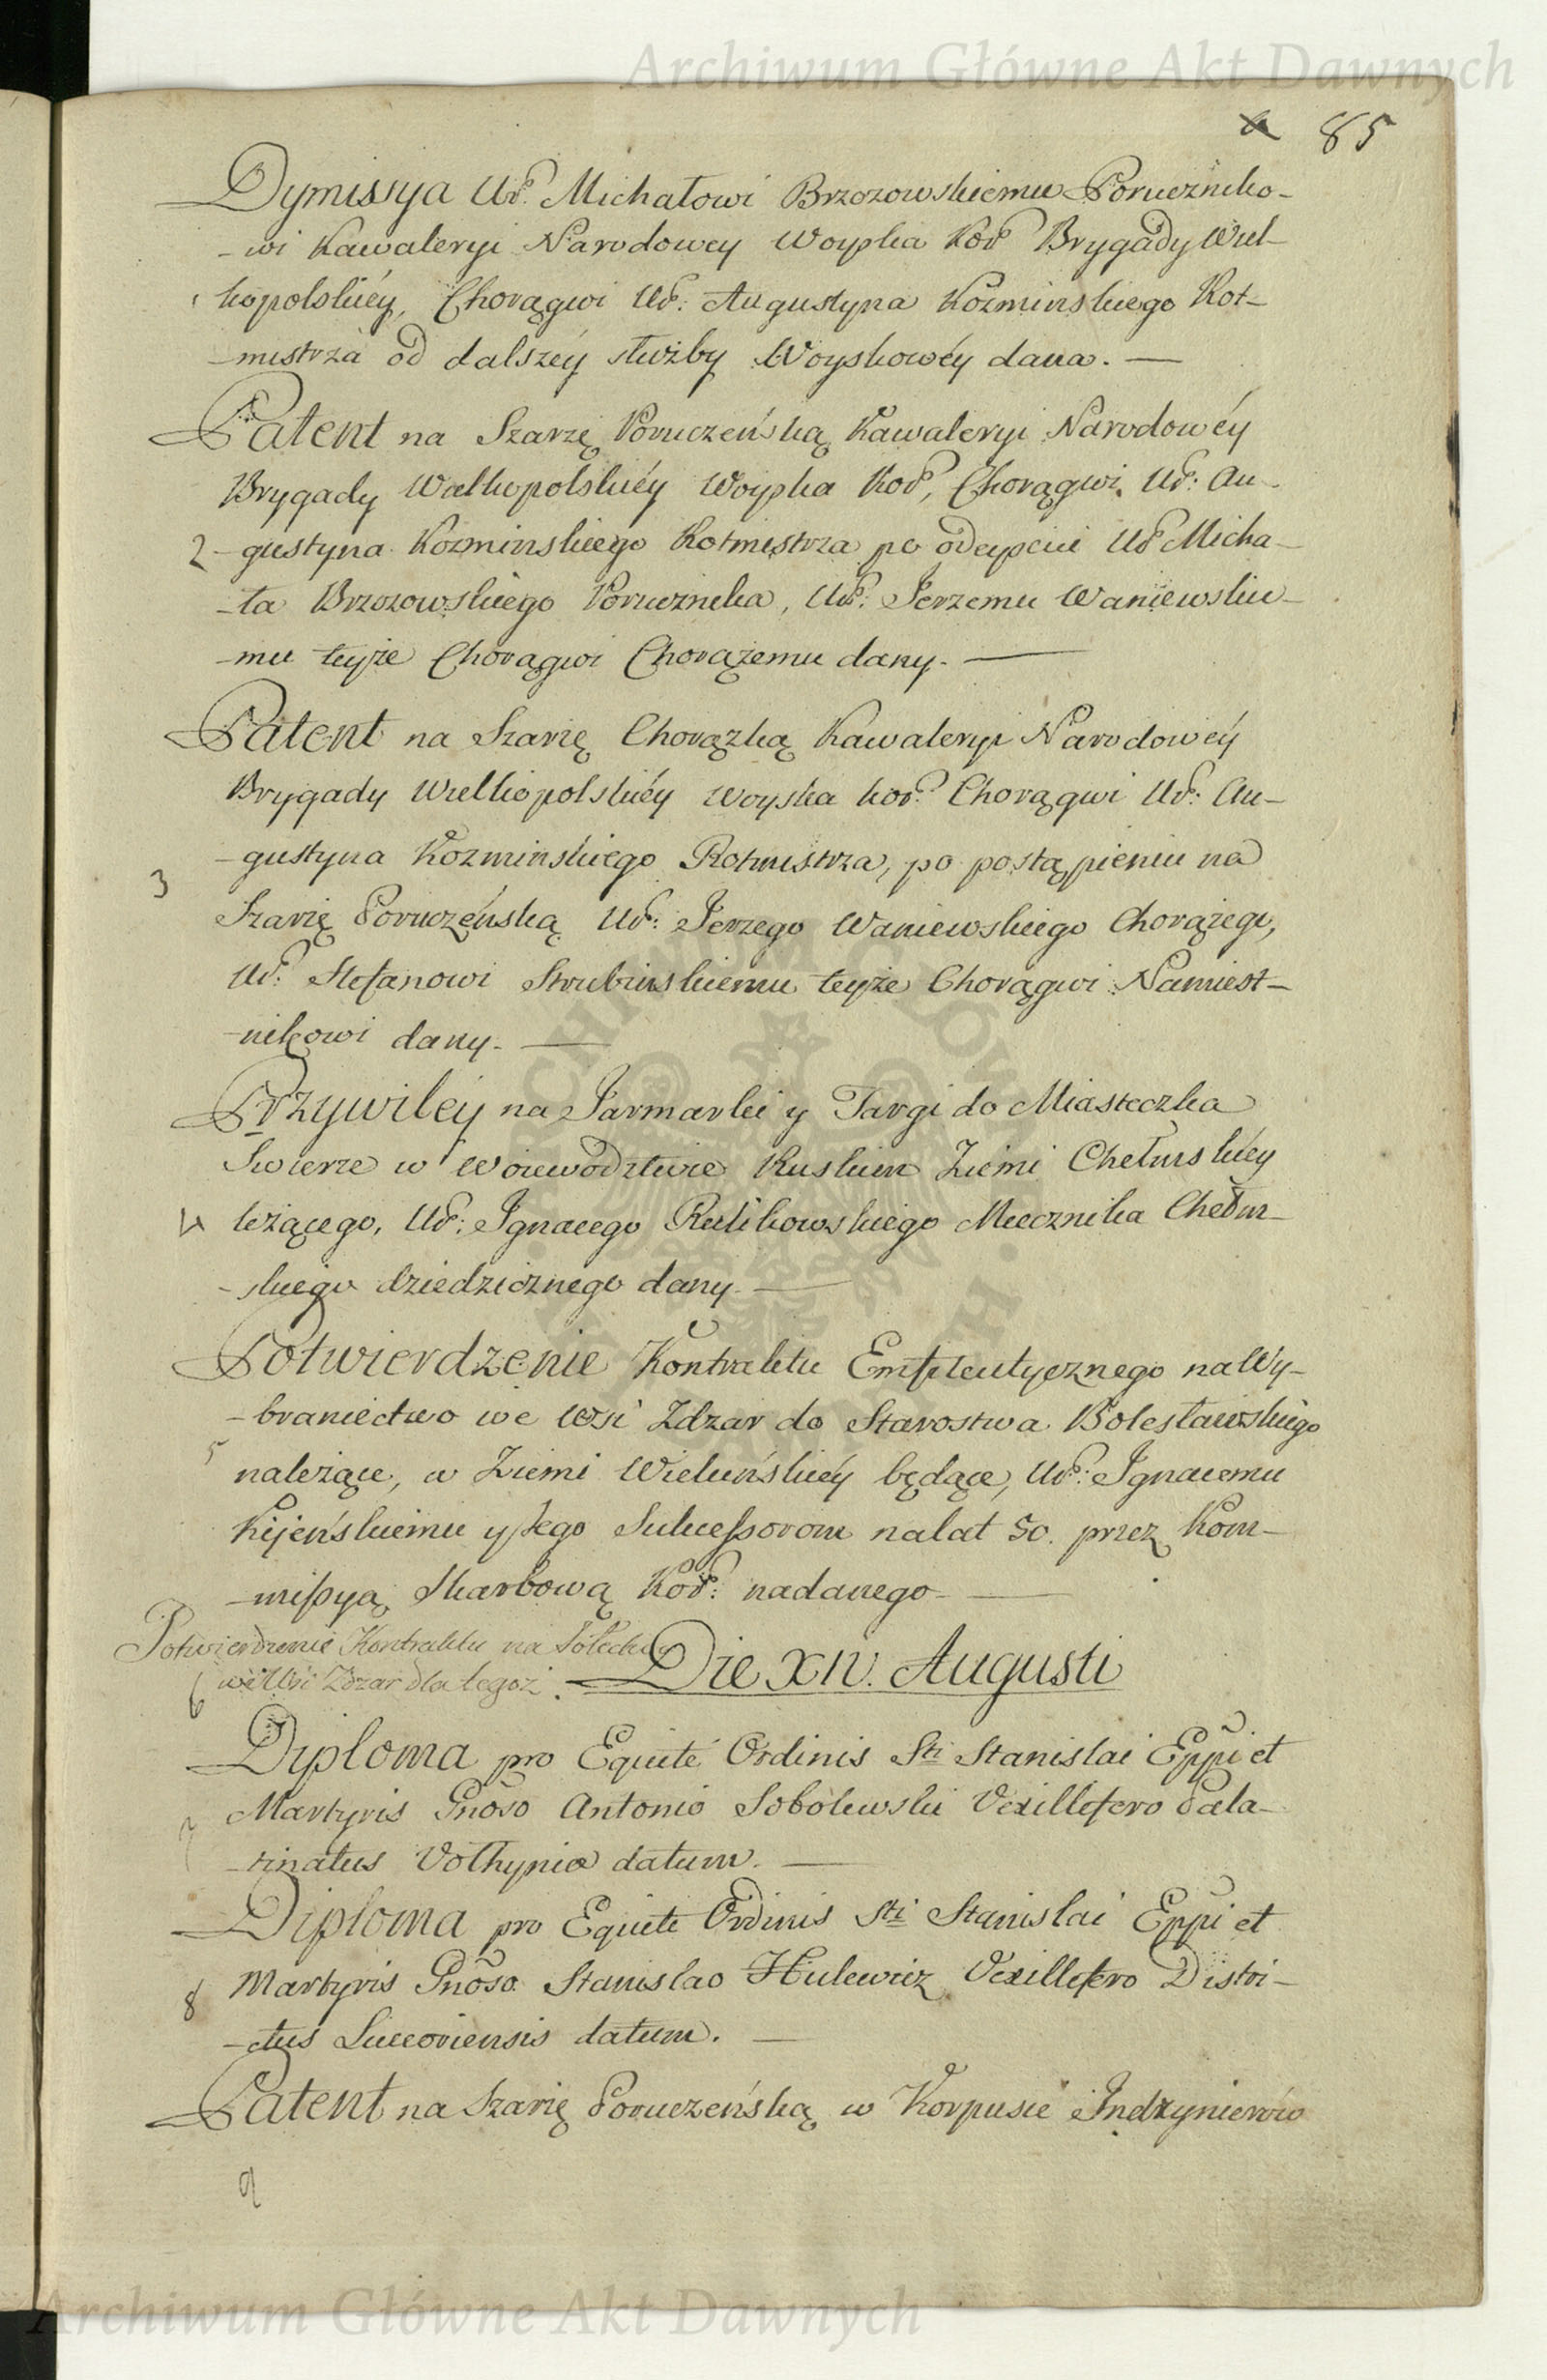 Archiwum Główne Akt Dawnych
85
Dymissya Ur: Michałowi Brzozowskiemu Poruczniko-
-wi Kawaleryi Narodowey Woyska Kor: Brygady Wiel-
1 kopolskiéy, Chorągwi Ur: Augustyna Kozminskiego Rot-
-mistrza od dalszéy służby Woyskowéy dana. —
Patent na Szarzę Poruczeńską Kawaleryi Narodowéy
Brygady Wielkopolskiéy Woyska Kor:, Chorągwi Ur: Au-
2 -gustyna Kozminskiego Rotmistrza po odeyściu Ur: Micha-
-ła Brzozowskiego Porucznika, Ur: Jerzemu Waniewskie-
-mu teyże Chorągwi Chorążemu dany. —
Patent na Szarżę Chorązką Kawaleryi Narodowéy
Brygady Wielkopolskiéy Woyska Kor: Chorągwi Ur: Au-
-gustyna Kozminskiego Rotmistrza, po postąpieniu na
3
Szarżę Poruczeńską Ur: Jerzego Waniewskiego Chorążego,
Ur: Stefanowi Strubinskiemu teyże Chorągwi Namiest-
-nikowi dany. —
Przywiléy na Jarmarki y Targi do Miasteczka
Swierze w Woiewodztwie Ruskim Ziemi Chełmskiéy
4 leżącego, Ur: Ignacego Rulikowskiego Miecznika Chełm-
-skiego dziedzicznego dany —
Potwierdzenie Kontraktu Emfiteutycznego na Wy-
-braniectwo we Wsi Zdzar do Starostwa Bolesławskiego
5
należące, w Ziemi Wieluńskiéy będące, Ur: Ignacemu
Kijeńskiemu y Jego Sukcessorom na lat 50. przez Kom-
-missyą Skarbową Kor: nadanego —
Potwierdzenie Kontraktu na Sołectwo
6 we Wsi Zdzar dla tegoż.
Die XIV. Augusti
Diploma pro Equite Ordinis Sti Stanislai Eppi et
7 Martyris Gnoso Antonio Sobolewski Vexillifero Pala-
-tinatus Volhyniæ datum. —
Diploma pro Equite Ordinis Sti Stanislai Eppi et
8 Martyris Gnoso Stanislao Hulewicz Vexillifero Distri-
-ctus Luceoriensis datum. —
Patent na Szarżę Poruczeńską w Korpusie Indzynierów
9
Archiwum Główne Akt Dawnych